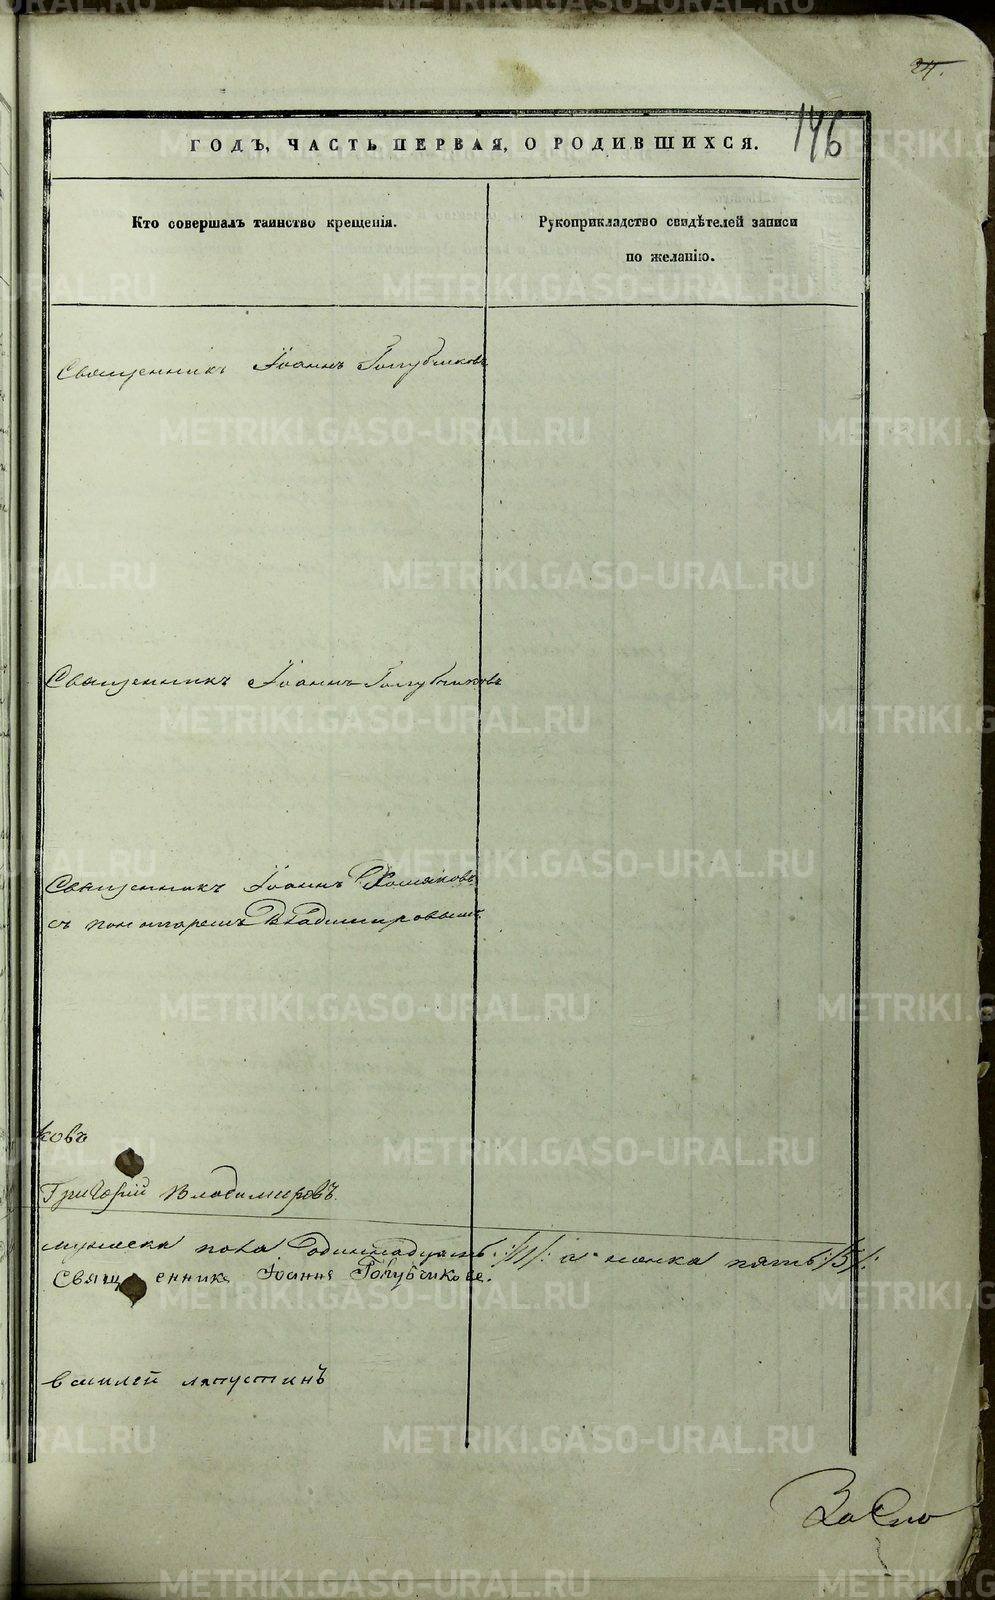 24.
146
ГОДЪ, ЧАСТЬ ПЕРВАЯ, О РОДИВШИХСЯ.
Кто совершалъ таинство крещенія.
Рукоприкладство свидѣтелей записи
по желанію.
Священникъ Іоаннъ Голубчиковъ
Священникъ Іоаннъ Голубчиковъ
Священникъ Іоаннъ Хомяковъ
съ пономаремъ Владимировымъ
ковъ
Григорій Владимировъ.
мужеска пола одиннадцать :/11/: а женска пять :/5/:
Священникъ Іоаннъ Голубчиковъ.
василей лапустинъ
METRIKI.GASO-URAL.RU